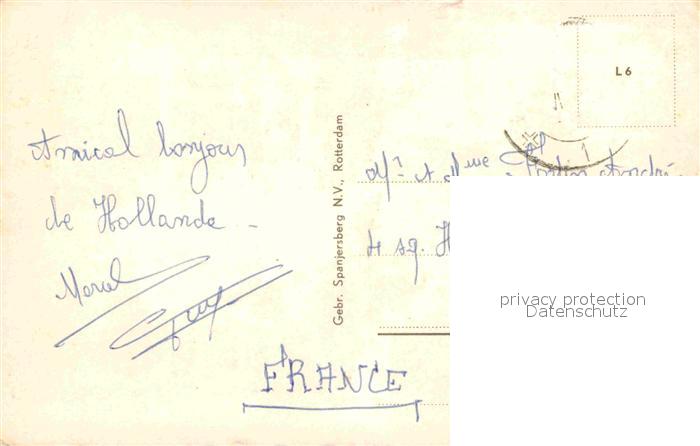 Amical bonjour
de Hollande -
Marcel
Gebr. Spanjersberg N.V., Rotterdam
L 6
Mr et Mme
André
4 sq. H
FRANCE
privacy protection
Datenschutz